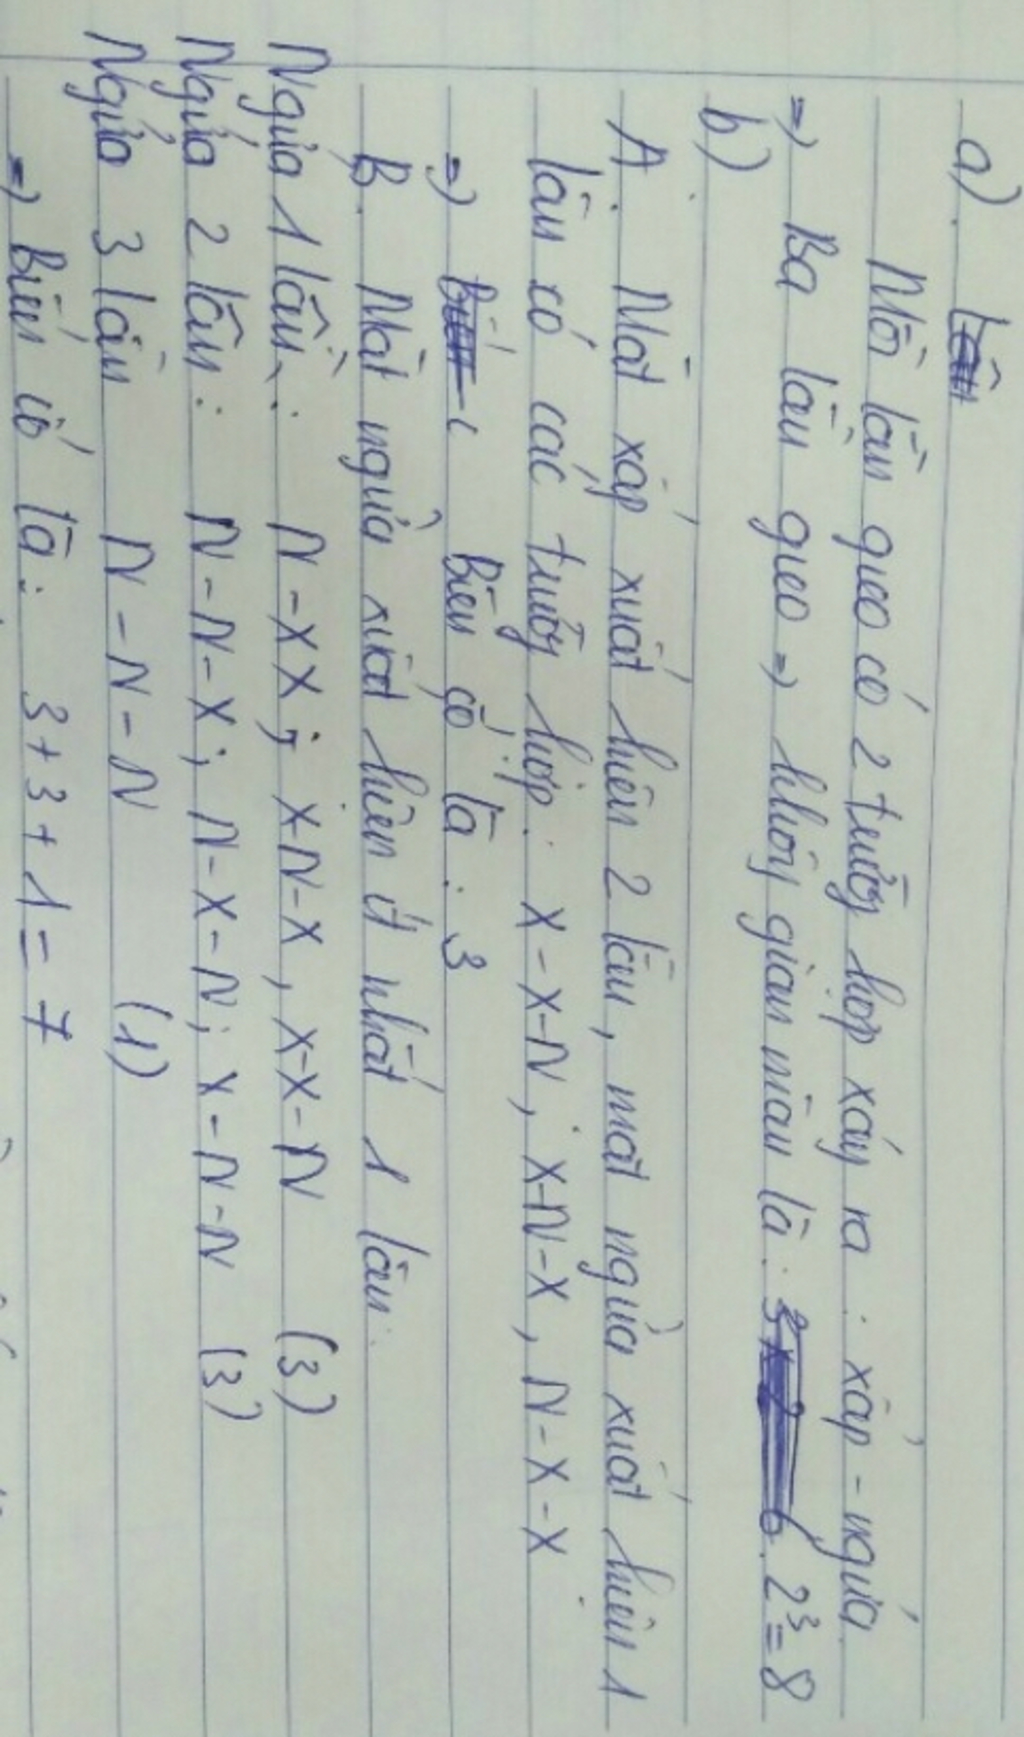 a).
Mỗi lần gieo có 2 trường hợp xảy ra: xấp - ngửa
=> Ba lần gieo => không gian mẫu là: 2³ = 8
b)
A. Mặt xấp xuất hiện 2 lần, mặt ngửa xuất hiện 1
lần có các trường hợp: X-X-N, X-N-X, N-X-X
=> Biến cố là: 3
B. Mặt ngửa xuất hiện ít nhất 1 lần:
Ngửa 1 lần: N-XX; XN-X, X-X-N (3)
Ngửa 2 lần: N-N-X; N-X-N; X-N-N (3)
Ngửa 3 lần N-N-N (1)
=> Biến cố là: 3+3+1=7